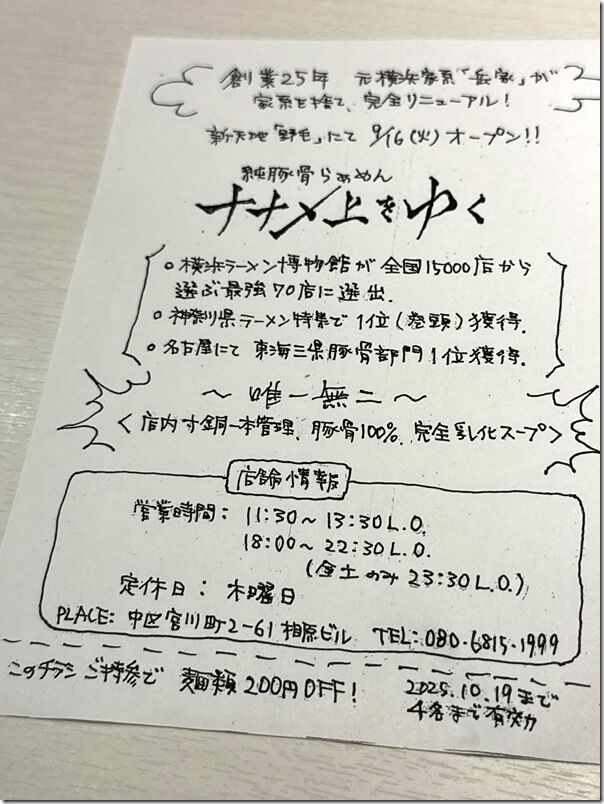 創業25年 元横浜家系「岳家」が
家系を捨て、完全リニューアル!
新天地「野毛」にて 9/16(火)オープン!!
純豚骨らぁめん
ナナメ上をゆく
○横浜ラーメン博物館が全国15000店から
選ぶ最強70店に選出.
○神奈川県ラーメン特集で1位(巻頭)獲得.
○名古屋にて 東海三県豚骨部門1位獲得.
〜 唯一無二 〜
<店内寸銅一本管理、豚骨100%、完全乳化スープ>
店舗情報
営業時間: 11:30〜13:30L.O.
18:00〜22:30L.O.
(金土のみ 23:30L.O.)
定休日: 木曜日
PLACE: 中区宮川町2-61 相原ビル TEL: 080-6815-1999
このチラシ ご持参で 麺類200円OFF!
2025.10.19まで
4名まで有効